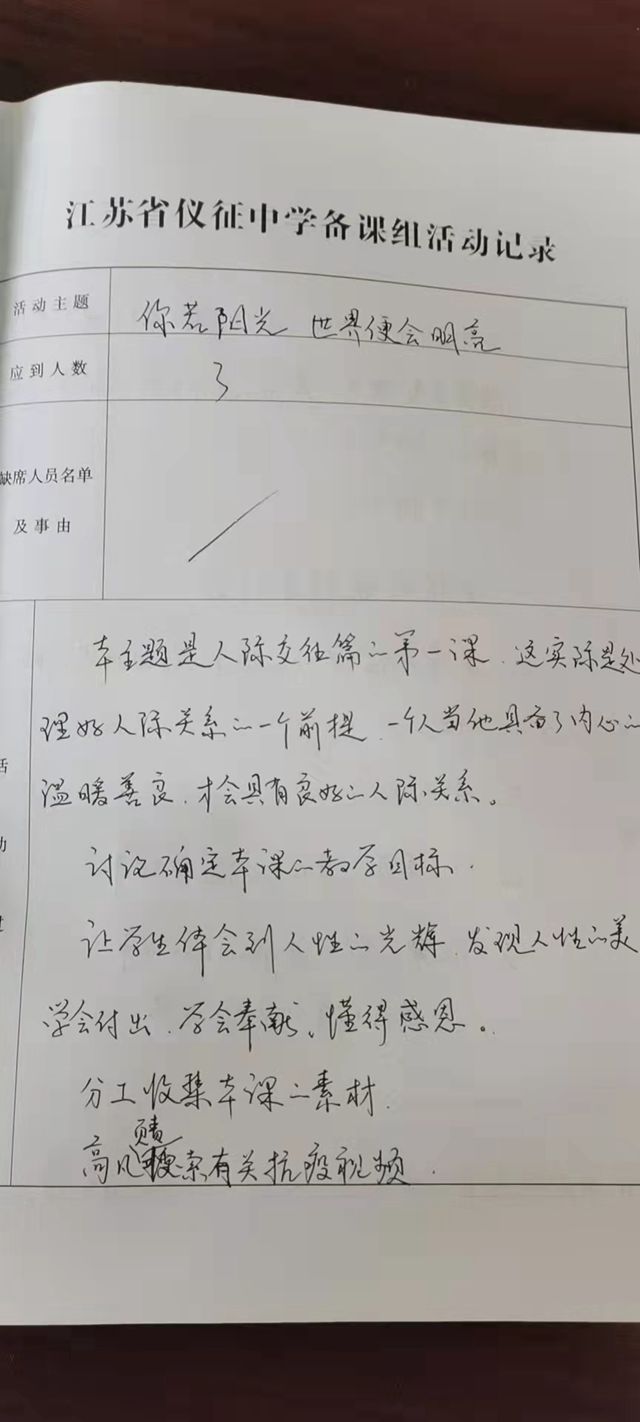 江苏省仪征中学备课组活动记录
活动主题 你若阳光 世界便会明亮
应到人数 3
缺席人员名单
及事由
本主题是人际交往篇的第一课.这实际是处
理好人际关系的一个前提.一个人当他具备了内心的
温暖善良.才会具有良好的人际关系。
讨论确定本课的教学目标.
让学生体会到人性的光辉.发现人性的美
学会付出.学会奉献。懂得感恩。
分工收集本课的素材.
负责
高凡搜索有关抗疫视频.
活
动